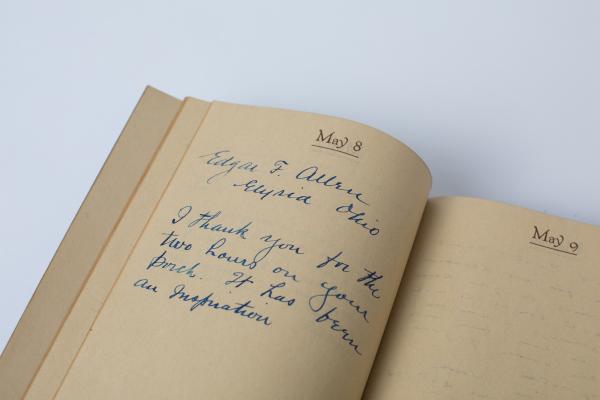 May 8
Edgar F. Allen
Elyria Ohio
I thank you for the
two hours on your
Porch. It has been
an Inspiration
May 9